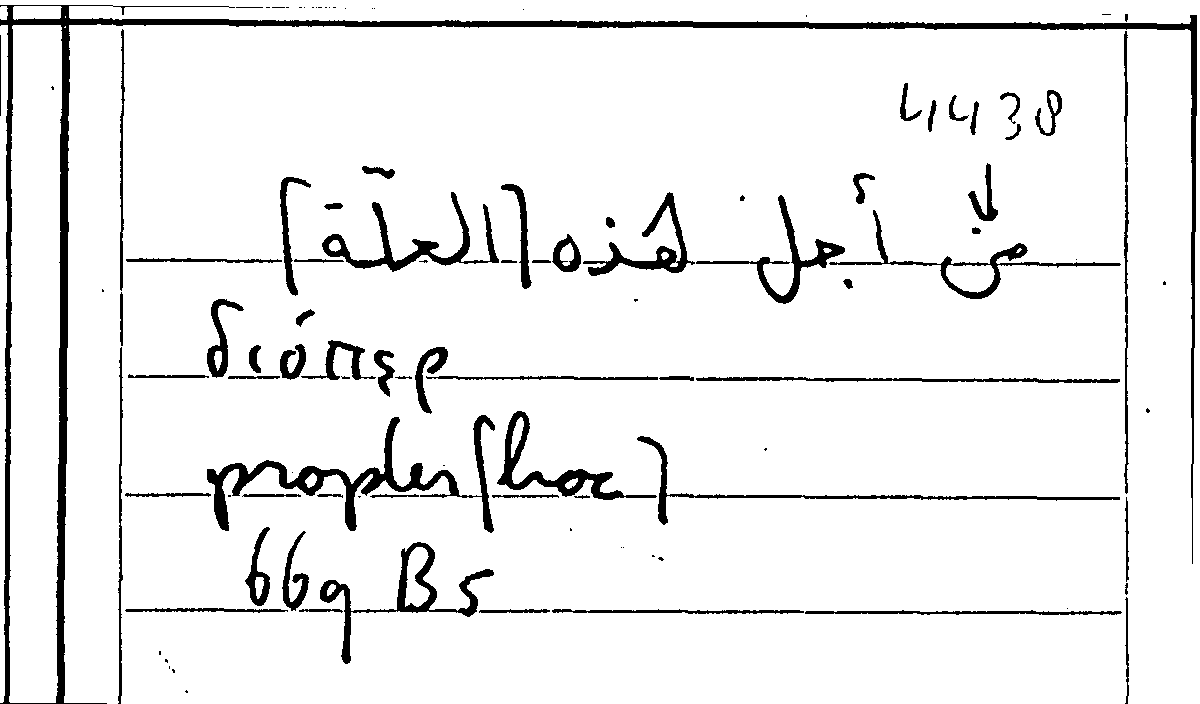 4438
من أجل هذه [العلّة]
διόπερ
propter [hoc]
669 B5